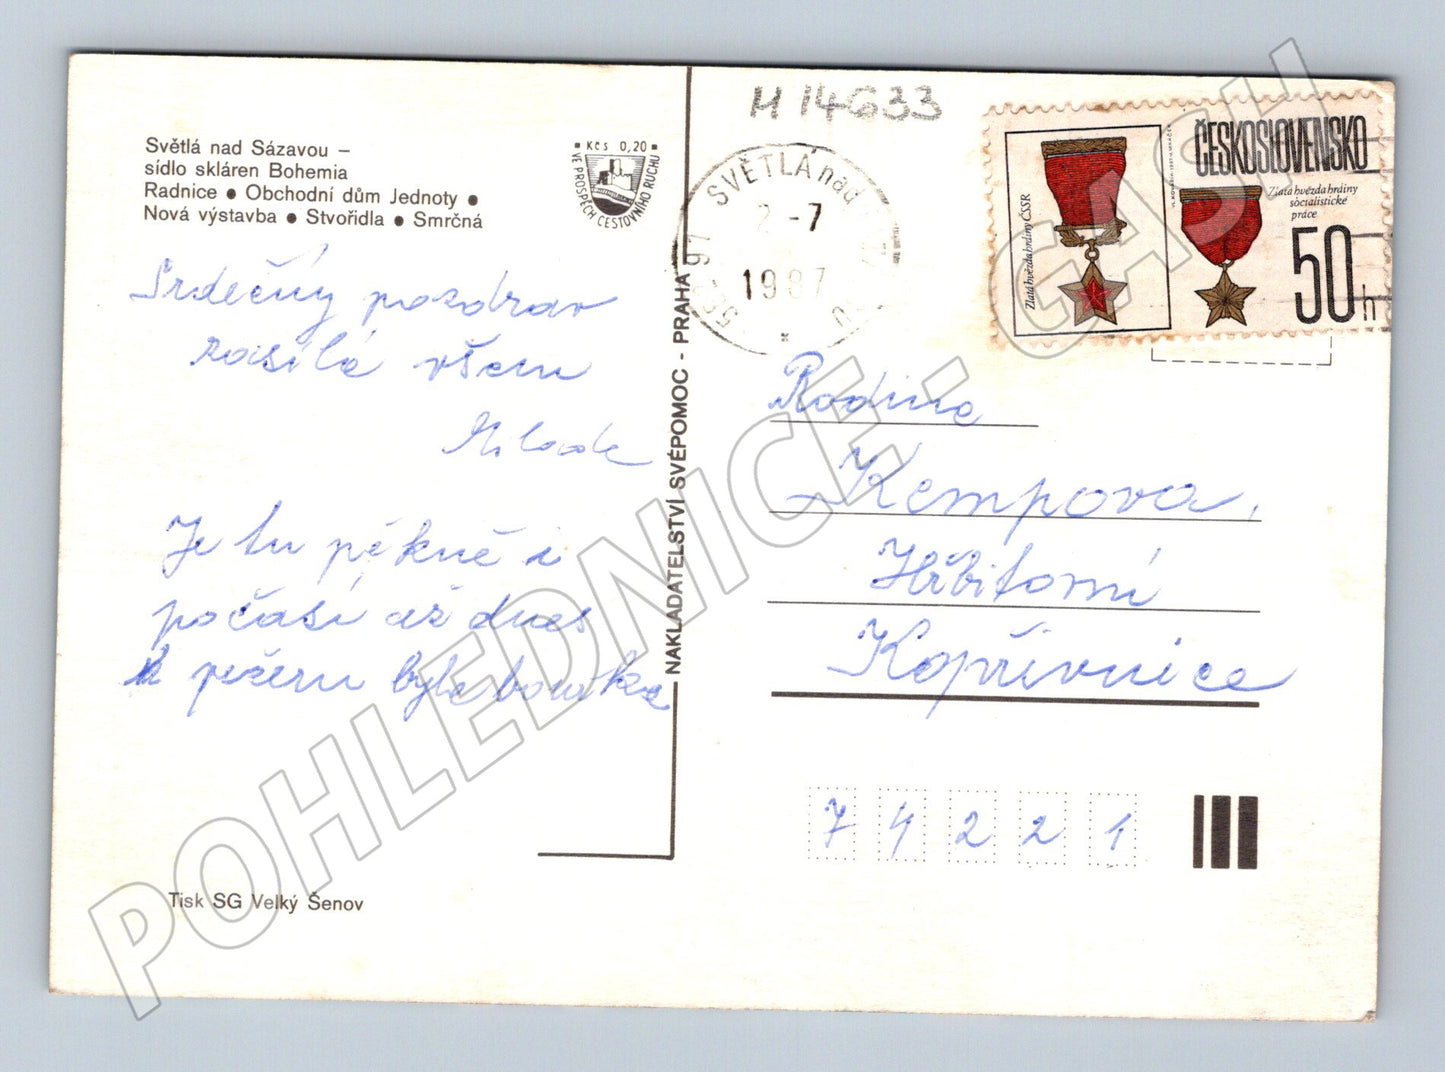 Světlá nad Sázavou –
sídlo skláren Bohemia
Radnice ● Obchodní dům Jednoty ●
Nová výstavba ● Stvořidla ● Smrčná
▪ Kčs 0,20 ▪
VE PROSPĚCH CESTOVNÍHO RUCHU
Srdečný pozdrav
zasílá všem
Je tu pěkně i
počasí až dnes
k večeru byla bouřka
Tisk SG Velký Šenov
NAKLADATELSTVÍ SVÉPOMOC - PRAHA
M 14633
SVĚTLÁ nad
2-7
1987
ČESKOSLOVENSKO
Zlatá hvězda hrdiny ČSSR
Zlatá hvězda hrdiny
socialistické
práce
50h
Rodina
Kempova,
Hřbitovní
Kopřivnice
74221
POHLEDNICE - GASH